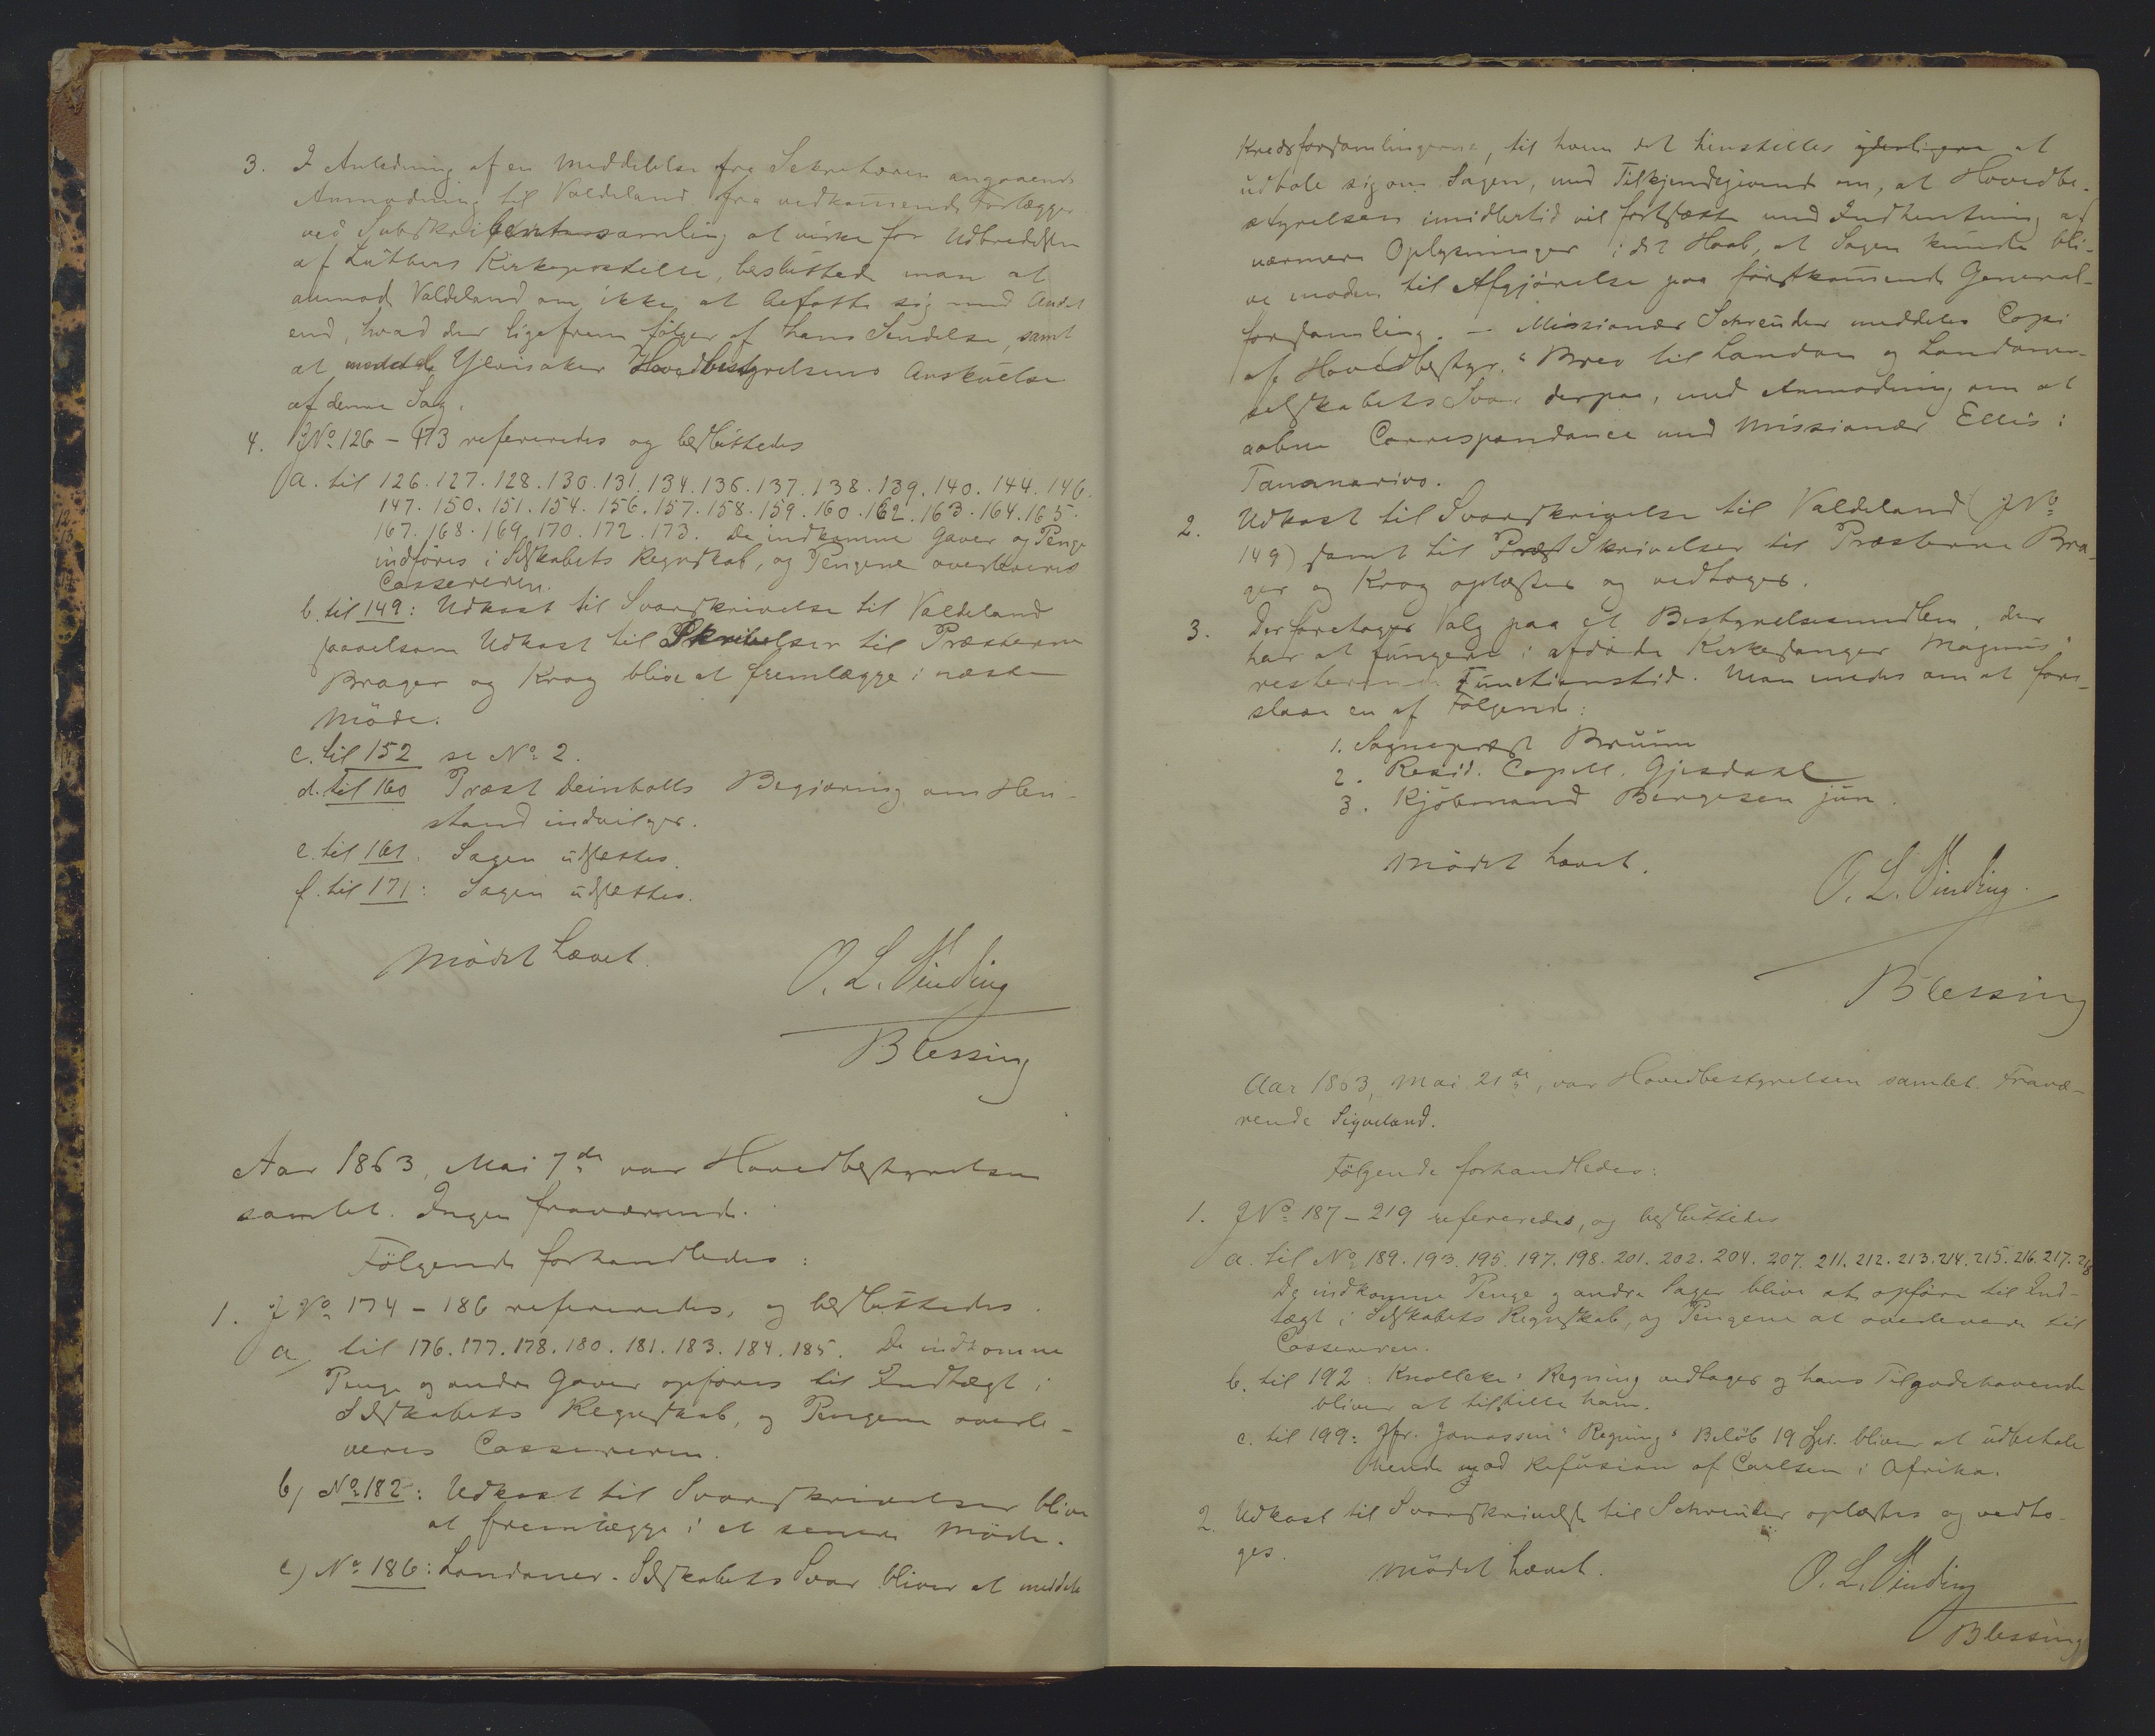 3. I Anledning af en Meddelelse fra Sekretæren angaaende
Anmodning til Valdeland fra vedkommende Forlægger
ved Subskribentsamling at virke for Udbredelsen
af Luthers Kirkepostille, besluttede man at
anmode Valdeland om ikke at befatte sig med Andet
end, hvad der ligefrem følger af hans Sendelse, samt
at meddele Ylvisaker Hovedbestyrelsens Anskuelse
af denne Sag.
4. JNo 126 - 173 refereredes og besluttedes
a. til 126. 127. 128. 130. 131. 134. 136. 137. 138. 139. 140. 144. 146.
147. 150. 151. 154. 156. 157. 158. 159. 160. 162. 163. 164. 165.
167. 168. 169. 170. 172. 173. De indkomne Gaver og Penge
indføres i Selskabets Regnskab, og Pengene overleveres
Cassereren.
b. til 149: Udkast til Svarskrivelse til Valdeland
saavelsom Udkast til Skrivelser til Præsterne
Brager og Krog blive at fremlægge i næste
Møde.
c. til 152 se No 2.
d. til 160 Præst Deinbolls Begjæring om Hen-
stand indvilges.
e. til 161. Sagen udsættes.
f. til 171: Sagen udsættes.
Mødet hævet.
O. L. Sinding
Blessing
Aar 1863, Mai 7de var Hovedbestyrelsen
samlet. Ingen fraværende.
Følgende forhandledes:
1. JNo 174 - 186 refereredes, og besluttedes.
a, til 176. 177. 178. 180. 181. 183. 184. 185. De indkomne
Penge og andre Gaver opføres til Indtægt i
Selskabets Regnskab, og Pengene overle-
veres Cassereren.
b, No 182: Udkast til Svarskrivelser blive
at fremlægge i et senere Møde.
c) No 186: Londoner-Selskabets Svar bliver at meddele
Kredsforsamlingerne, til hvem det henstilles yderligere at
udtale sig om Sagen, med Tilkjendegivende om, at Hovedbe-
styrelsen imidlertid vil fortsætte med Indhentning af
nærmere Oplysninger i det Haab, at Sagen kunde bli-
ve moden til Afgjørelse paa førstkommende General-
forsamling. - Missionær Schreuder meddeles Copi
af Hovedbestyr.s Brev til London og Londoner-
selskabets Svar derpaa, med Anmodning om at
aabne Correspondance med Missionær Ellis i
Tananarivo.
2. Udkast til Svarskrivelse til Valdeland (JNo
149) samt til Præst Skrivelser til Præsterne Bra-
ger og Krog oplæstes og vedtoges.
3. Der foretoges Valg paa et Bestyrelsesmedlem, der
har at fungere i afdøde Kirkesanger Magnus'
resterende Functionstid. Man enedes om at fore-
slaae en af Følgende:
1. Sognepræst Bruun
2. Resid. Capell. Gjesdahl
3. Kjøbmand Bergesen jun.
Mødet hævet.
O. L. Sinding.
Blessing
Aar 1863, Mai 21de, var Hovedbestyrelsen samlet. Fravæ-
rende Sigveland.
Følgende forhandledes:
1. JNo 187 - 219 refereredes, og besluttedes
a. til No 189. 193. 195. 197. 198. 201. 202. 204. 207. 211. 212. 213. 214. 215. 216. 217. 218
De indkomne Penge og andre Sager blive at opføre til Ind-
tægt i Selskabets Regnskab, og Pengene at overlevere til
Cassereren.
b. til 192: Regning vedtages og hans Tilgodehavende
bliver at tilstille ham.
c. til 199: Jfr. Jonassens Regnings Beløb 19 Spd. bliver at udbetale
hende mod Refusion af Carlsen i Afrika.
2. Udkast til Svarskrivelse til Schreuder oplæstes og vedto-
ges.
Mødet hævet.
O. L. Sinding
Blessing